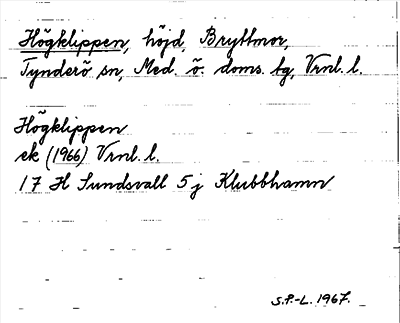 Högklippen, höjd, Bryttmor,
Tynderö sn, Med. ö. doms. tg, Vrnl. l.
Högklippen
ek (1966) Vrnl. l.
17 H Sundsvall 5 j Klubbhamn
S.P.-L. 1967.